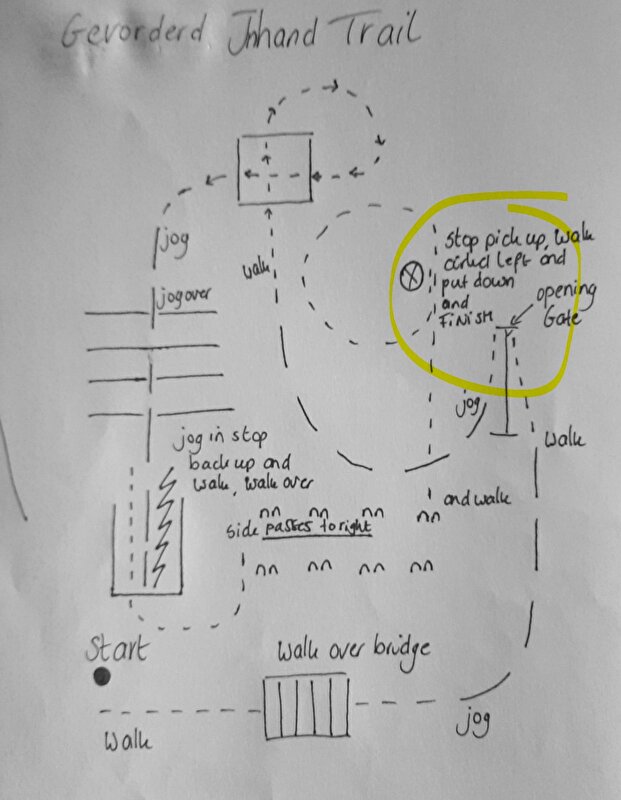 Gevorderd Inhand Trail
jog
walk
jog over
Stop pick up, walk
cirkel left and
put down
and
FiNiSH
opening
Gate
jog
walk
jog in stop
back up and
walk, walk over
and walk
Side passes to right
Start
Walk over bridge
walk
jog